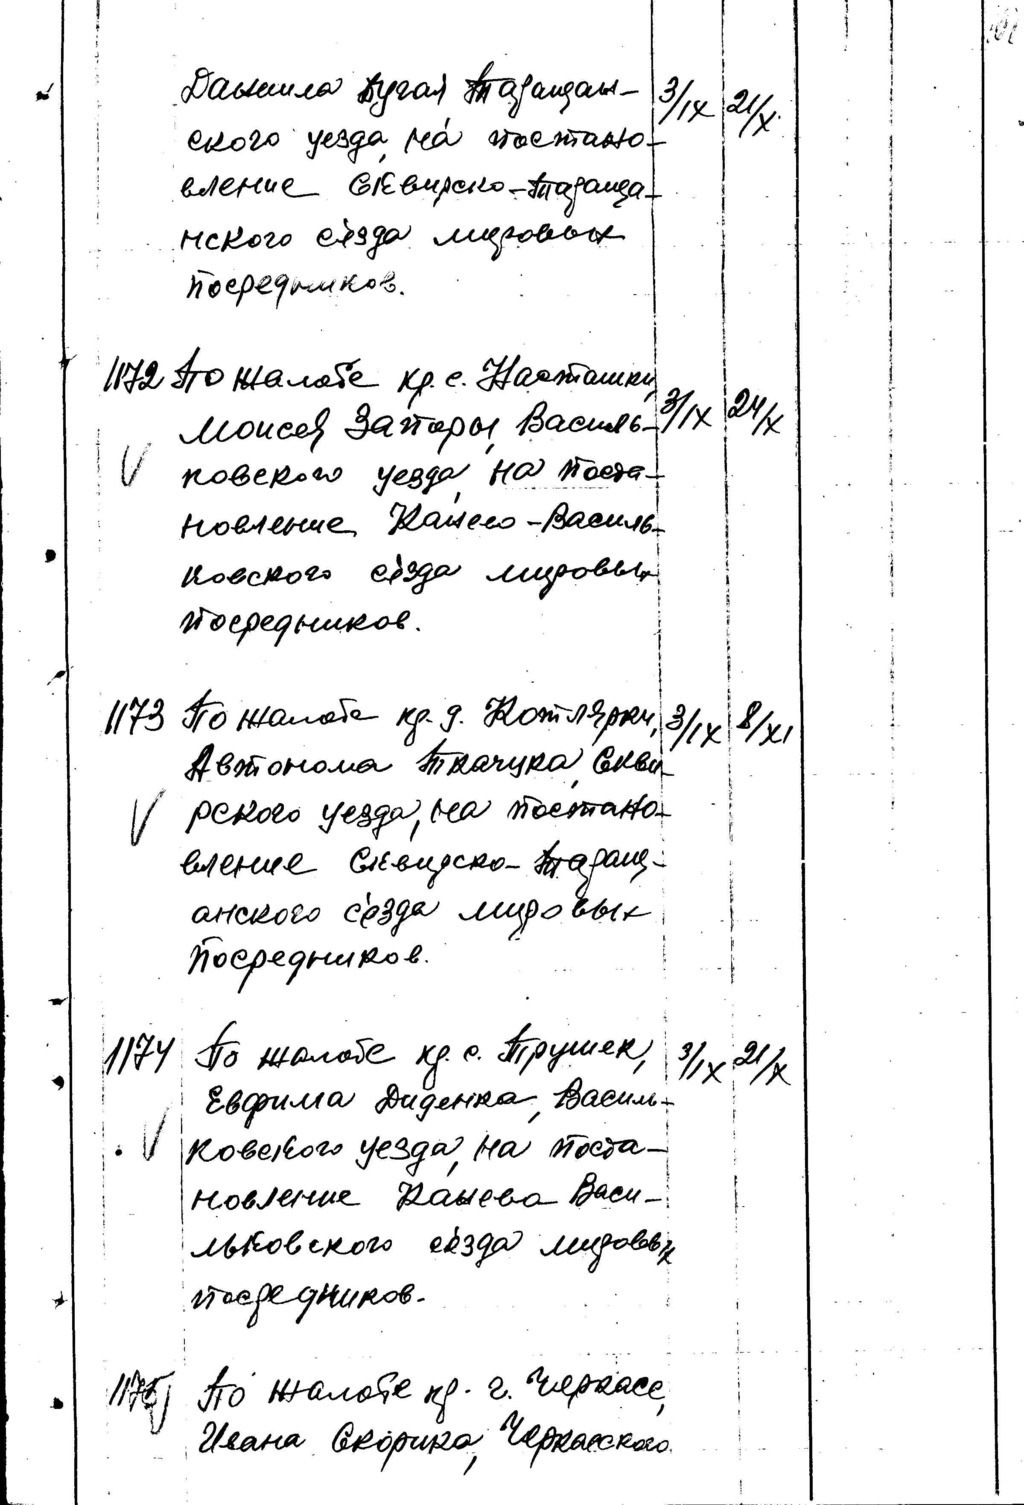 Даниила Бугая Таращан- 3/IX 21/X.
ского уезда, на постано-
вление Сквирско-Тараща-
нского съезда мировых
посредников.
1172 По жалобе кр. с. Насташки,
Моисея Запары, Василь- 3/IX 24/X
ковского уезда, на поста-
новление Канево-Василь-
ковского съезда мировых
посредников.
1173 По жалобе кр. д. Котлярки, 3/IX 8/XI
Автонома Ткачука, Скви-
рского уезда, на постано-
вление Сквирско-Таращ-
анского съезда мировых
посредников.
1174 По жалобе кр. с. Трушек, 3/IX 21/X
Евфима Диденка, Василь-
ковского уезда, на поста-
новление Канева Васи-
льковского съезда мировых
посредников.
1175 По жалобе кр. г. Черкасс,
Ивана Скорика, Черкасского